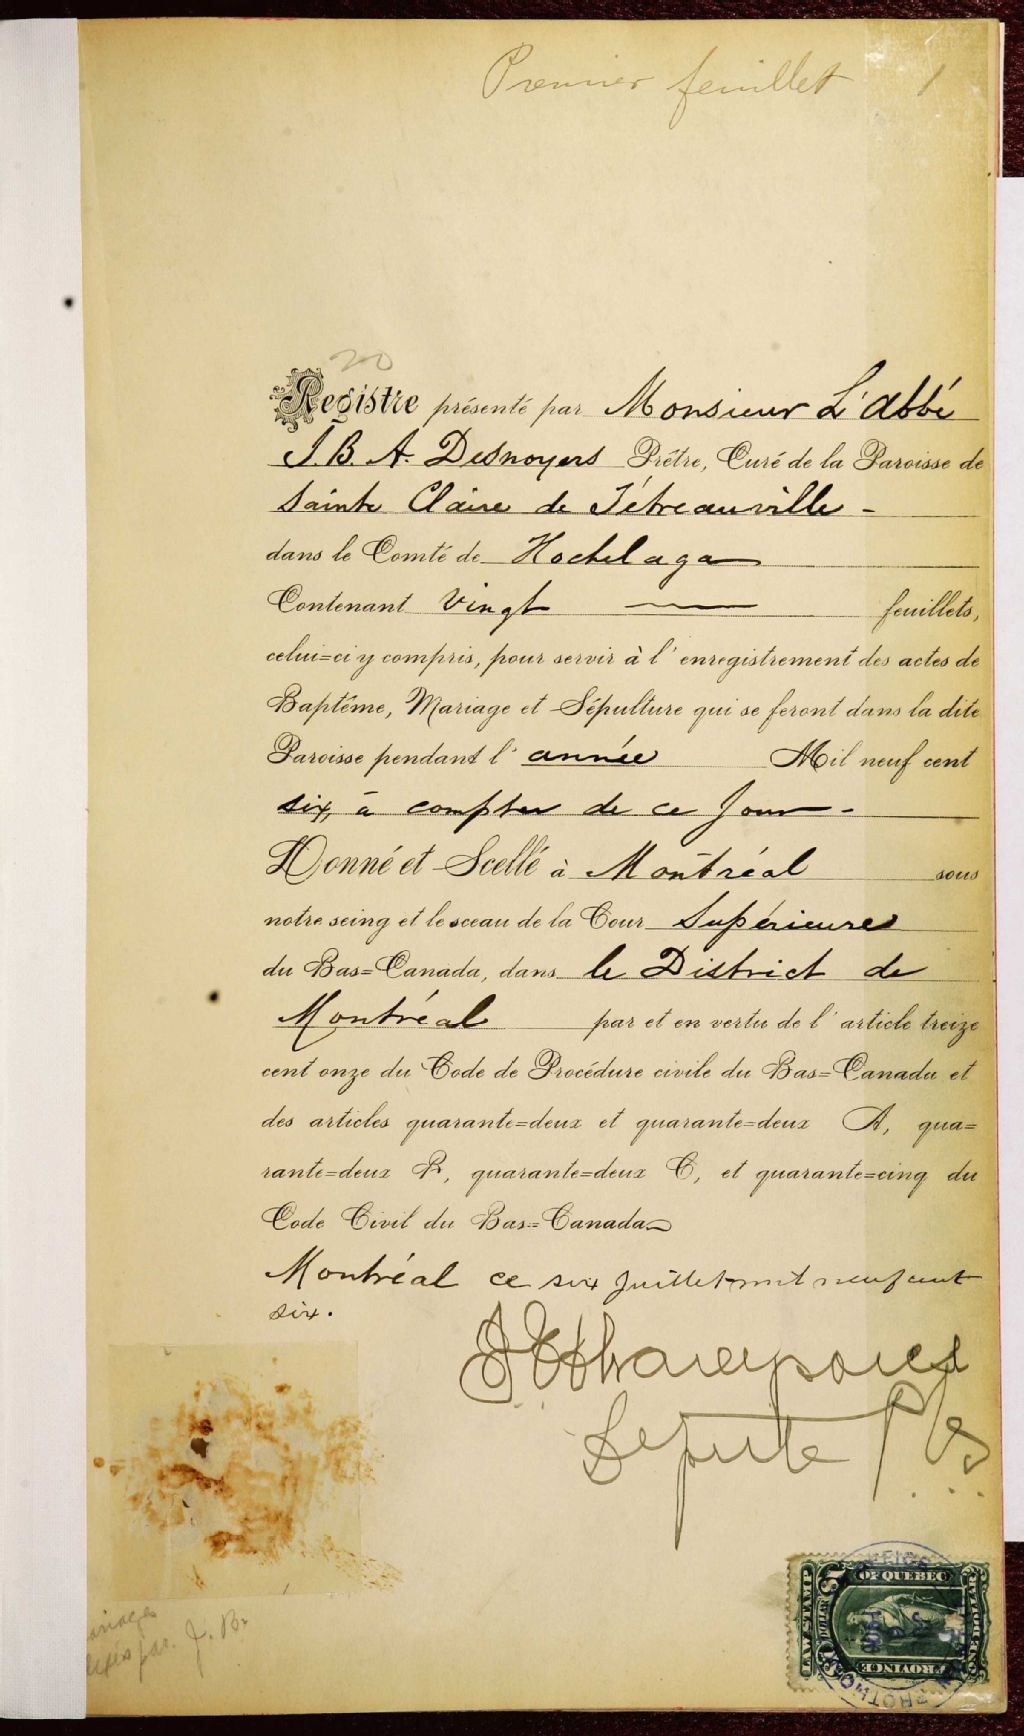 Premier feuillet 1
20
Registre présenté par Monsieur L'abbé
J. B. A. Desnoyers Prêtre, Curé de la Paroisse de
Sainte Claire de Tétreauville -
dans le Comté de Hochelaga
Contenant Vingt feuillets,
celui=ci y compris, pour servir à l'enregistrement des actes de
Baptême, Mariage et Sépulture qui se feront dans la dite
Paroisse pendant l'année Mil neuf cent
six, à compter de ce jour -
Donné et Scellé à Montréal sous
notre seing et le sceau de la Cour Supérieure
du Bas=Canada, dans le District de
Montréal par et en vertu de l'article treize
cent onze du Code de Procédure civile du Bas=Canada et
des articles quarante=deux et quarante=deux A, qua=
rante=deux B, quarante=deux C, et quarante=cinq du
Code Civil du Bas=Canada
Montréal ce six juillet mil neuf cent
six.
Député
J. Br
OF QUEBEC
LAW STAMP
ONE DOLLAR
PROVINCE